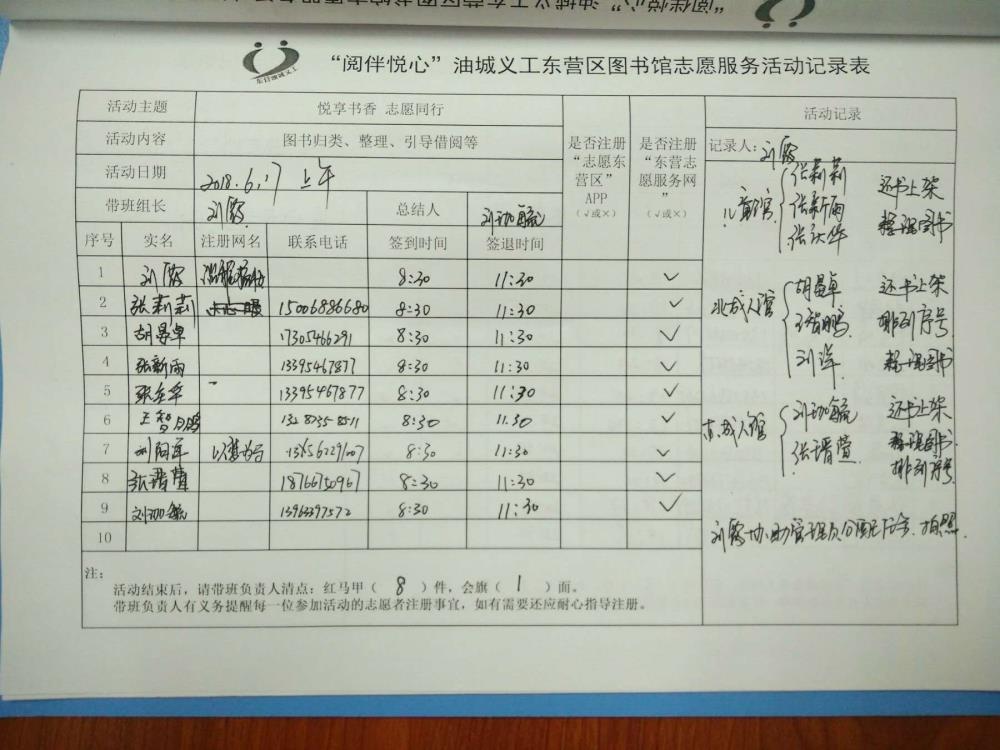 “阅伴悦心”油城义工东营区图书馆志愿服务活动记录表
活动主题 悦享书香 志愿同行
活动内容 图书归类、整理、引导借阅等
活动日期 2018.6.17 上午
带班组长 刘霞 总结人
是否注册“志愿东营区”APP（√或×）
是否注册“东营志愿服务网”（√或×）
序号 实名 注册网名 联系电话 签到时间 签退时间
1 刘霞 8:30 11:30 ✓
2 张莉莉 15006886680 8:30 11:30 ✓
3 胡晏卓 17305466291 8:30 11:30 ✓
4 张新雨 13395467877 8:30 11:30 ✓
5 13395467877 8:30 11:30 ✓
6 王智鹏 8:30 11.30 ✓
7 8:30 11:30 ✓
8 张瑨萱 18766750967 8:30 11:30 ✓
9 13963397572 8:30 11:30 ✓
10
注：
活动结束后，请带班负责人清点：红马甲（ 8 ）件，会旗（ 1 ）面。
带班负责人有义务提醒每一位参加活动的志愿者注册事宜，如有需要还应耐心指导注册。
活动记录
记录人：刘霞
儿童馆 张莉莉 还书上架
张新雨 整理图书
北成人馆 胡晏卓 还书上架
王智鹏 排列序号
刘洋 整理图书
东成人馆 还书上架
张瑨萱 整理图书
排列序号
刘霞协助管理员分配任务、拍照.